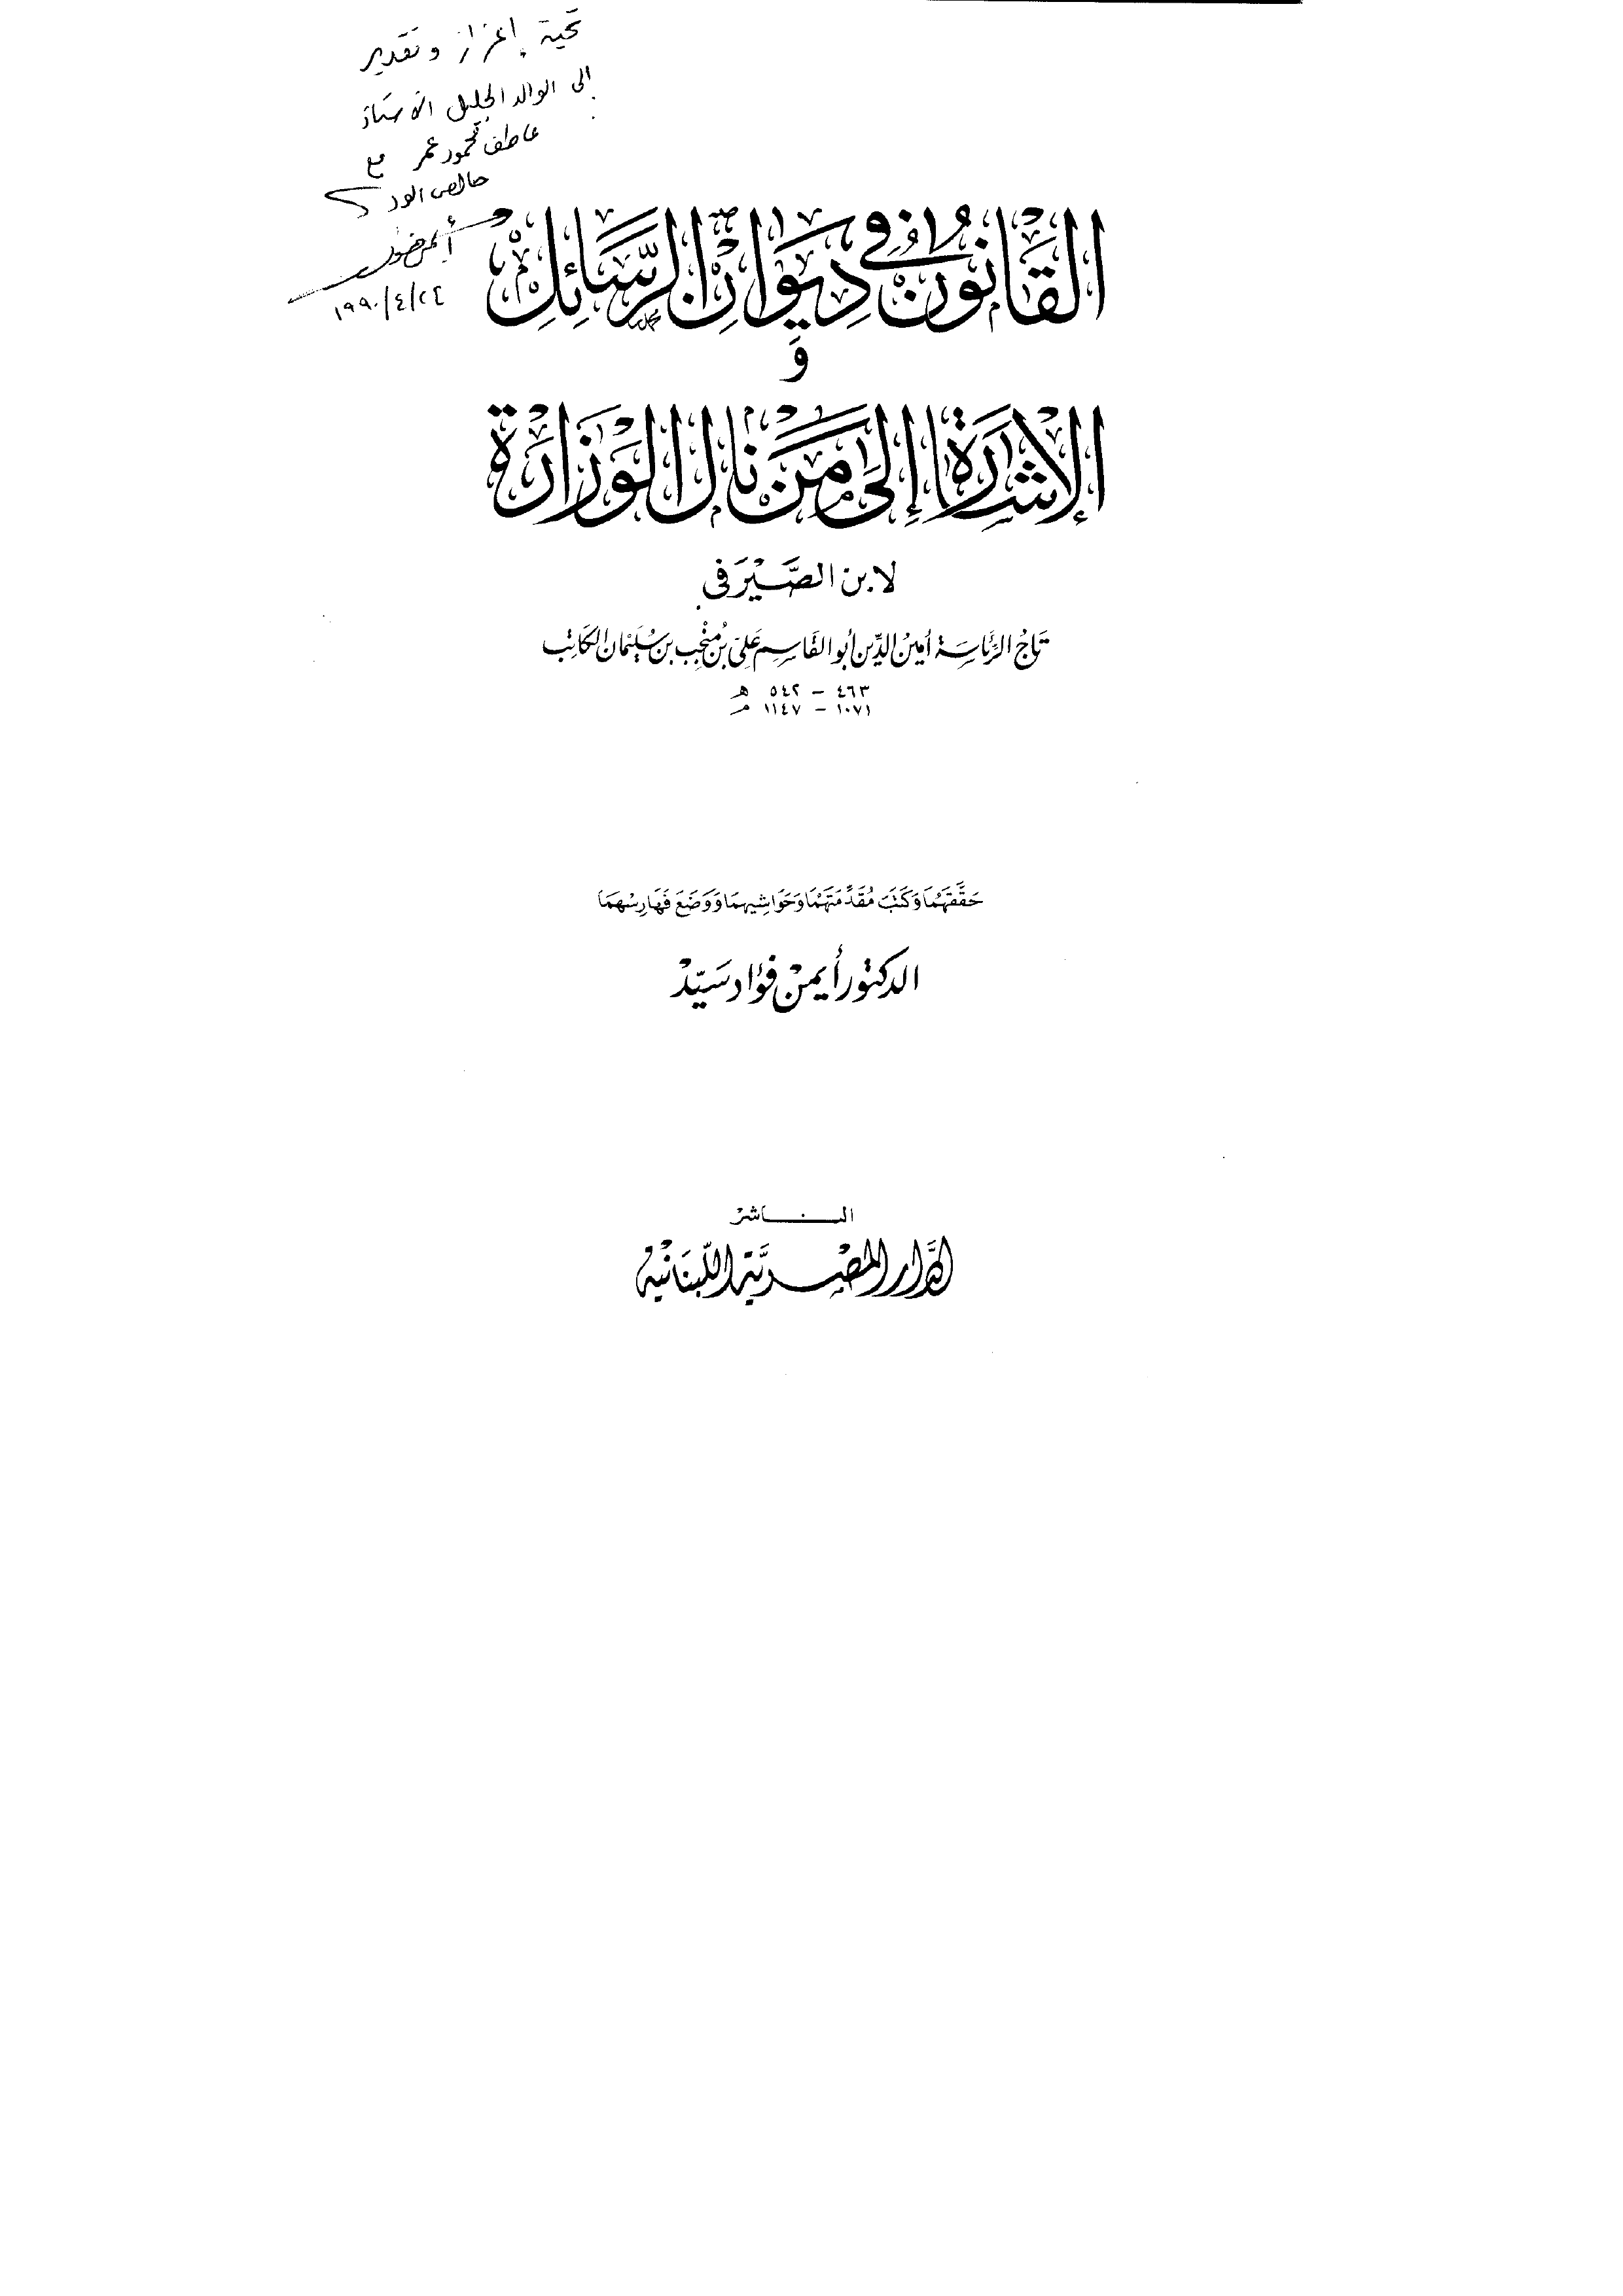 تحية إعزاز وتقدير
إلى الوالد الجليل الأستاذ
عاطف محمود عمر مع
خالص الود
أيمن
١٩٩٠/٤/٢٤
القَانُونُ فِي دِيوَانِ الرَّسَائِلِ
وَ
الإِشَارَة إِلَى مَنْ نَالَ الوَزَارَة
لابن الصَّيْرَفى
تَاجُ الرِّئَاسَة أمِينُ الدِّين أبو القَاسِم عَلِىّ بْنُ مُنْجِب بن سُلَيْمَان الكَاتِب
٤٦٣ – ٥٤٢ هـ
١٠٧١ – ١١٤٧ م
حَقَّقَهُمَا وَكَتَبَ مُقَدِّمَتَهُمَا وَحَوَاشِيهمَا وَوَضَعَ فَهَارِسْهمَا
الدكتور أيمنْ فؤاد سَيّدْ
الناشرْ
الدَّار المصْرِيَّة اللّبْنَانيْة